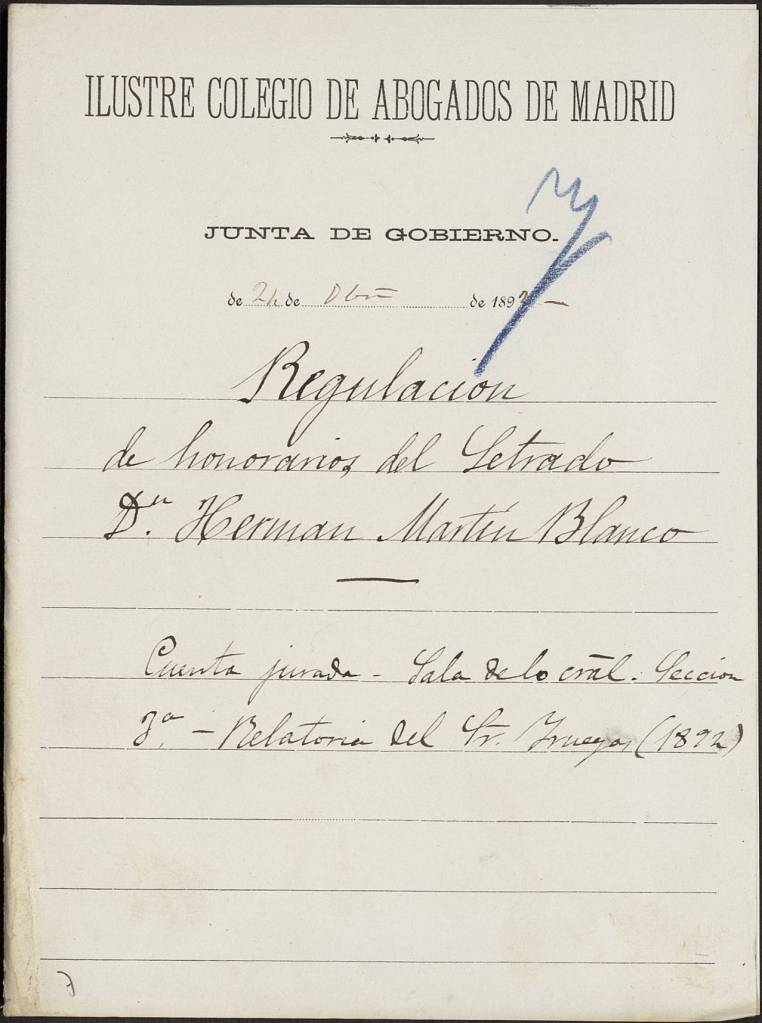 ILUSTRE COLEGIO DE ABOGADOS DE MADRID
JUNTA DE GOBIERNO.
de de de 1892
Regulacion
de honorarios del Letrado
Dn. Herman Martín Blanco
Cuenta jurada - Sala de lo cral. Seccion
3ª. - Relatoria del Sr. (1892)